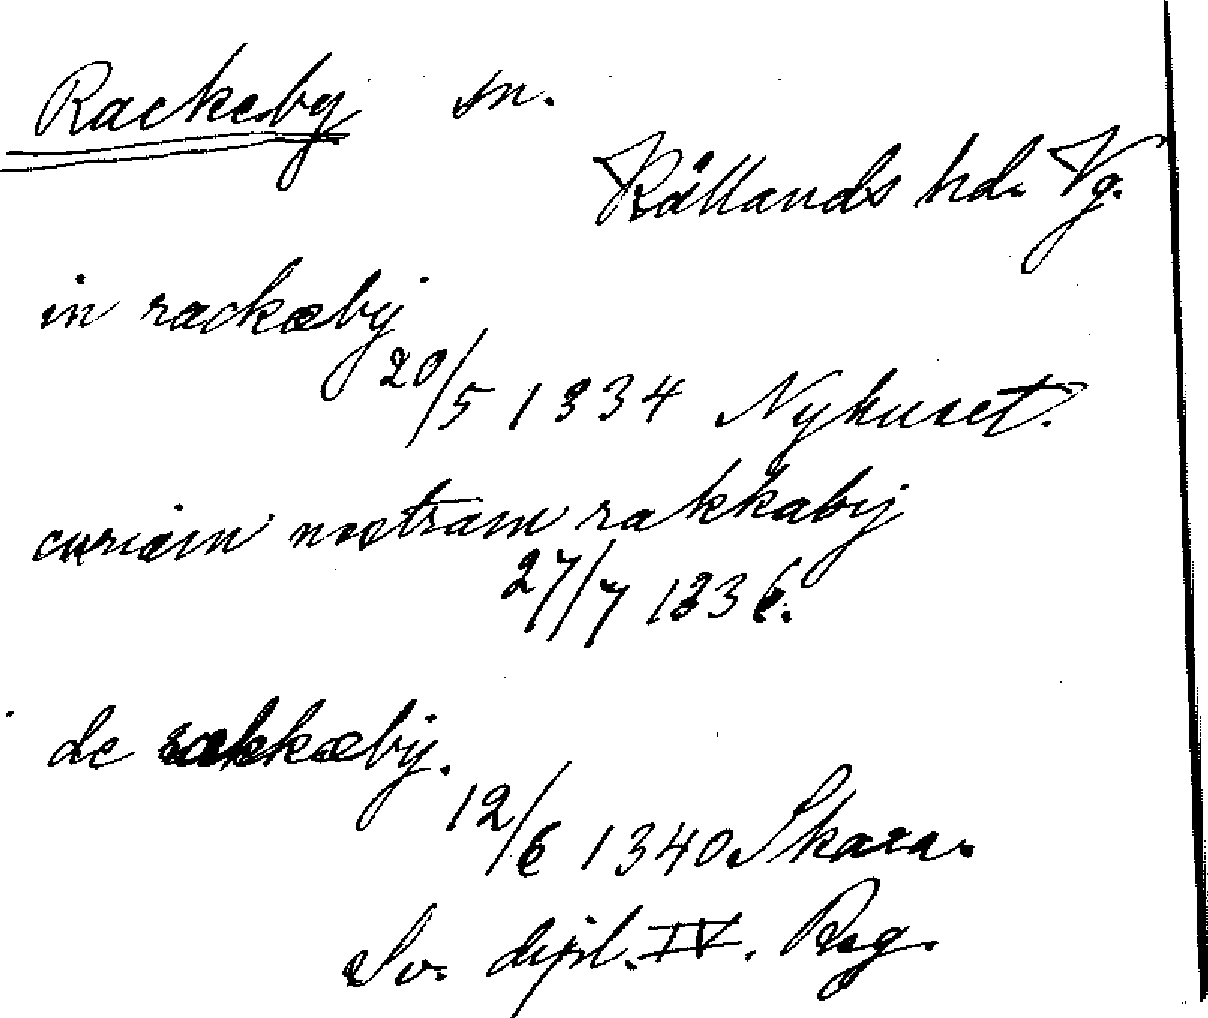 Rackeby sn.
Kållands hd. Vg.
in rackæby
20/5 1334 Nyhuset.
curiam nostram rakkaby
27/7 1336.
de rækkæby.
12/6 1340 Skara.
Sv. dipl. IV. Reg.